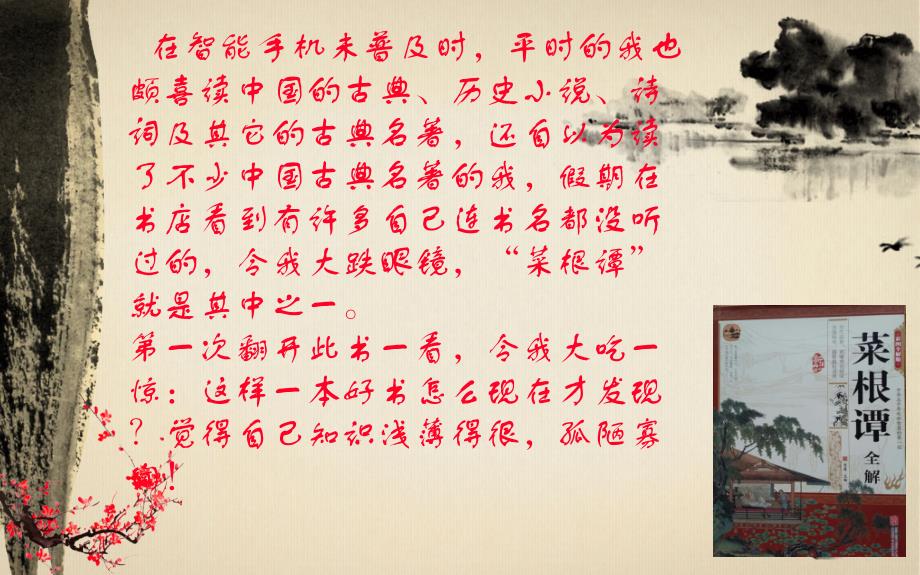 在智能手机未普及时，平时的我也
颇喜读中国的古典、历史小说、诗
词及其它的古典名著，还自以为读
了不少中国古典名著的我，假期在
书店看到有许多自己连书名都没听
过的，令我大跌眼镜，“菜根谭”
就是其中之一。
第一次翻开此书一看，令我大吃一
惊：这样一本好书怎么现在才发现
？觉得自己知识浅薄得很，孤陋寡
！
菜根谭
全解